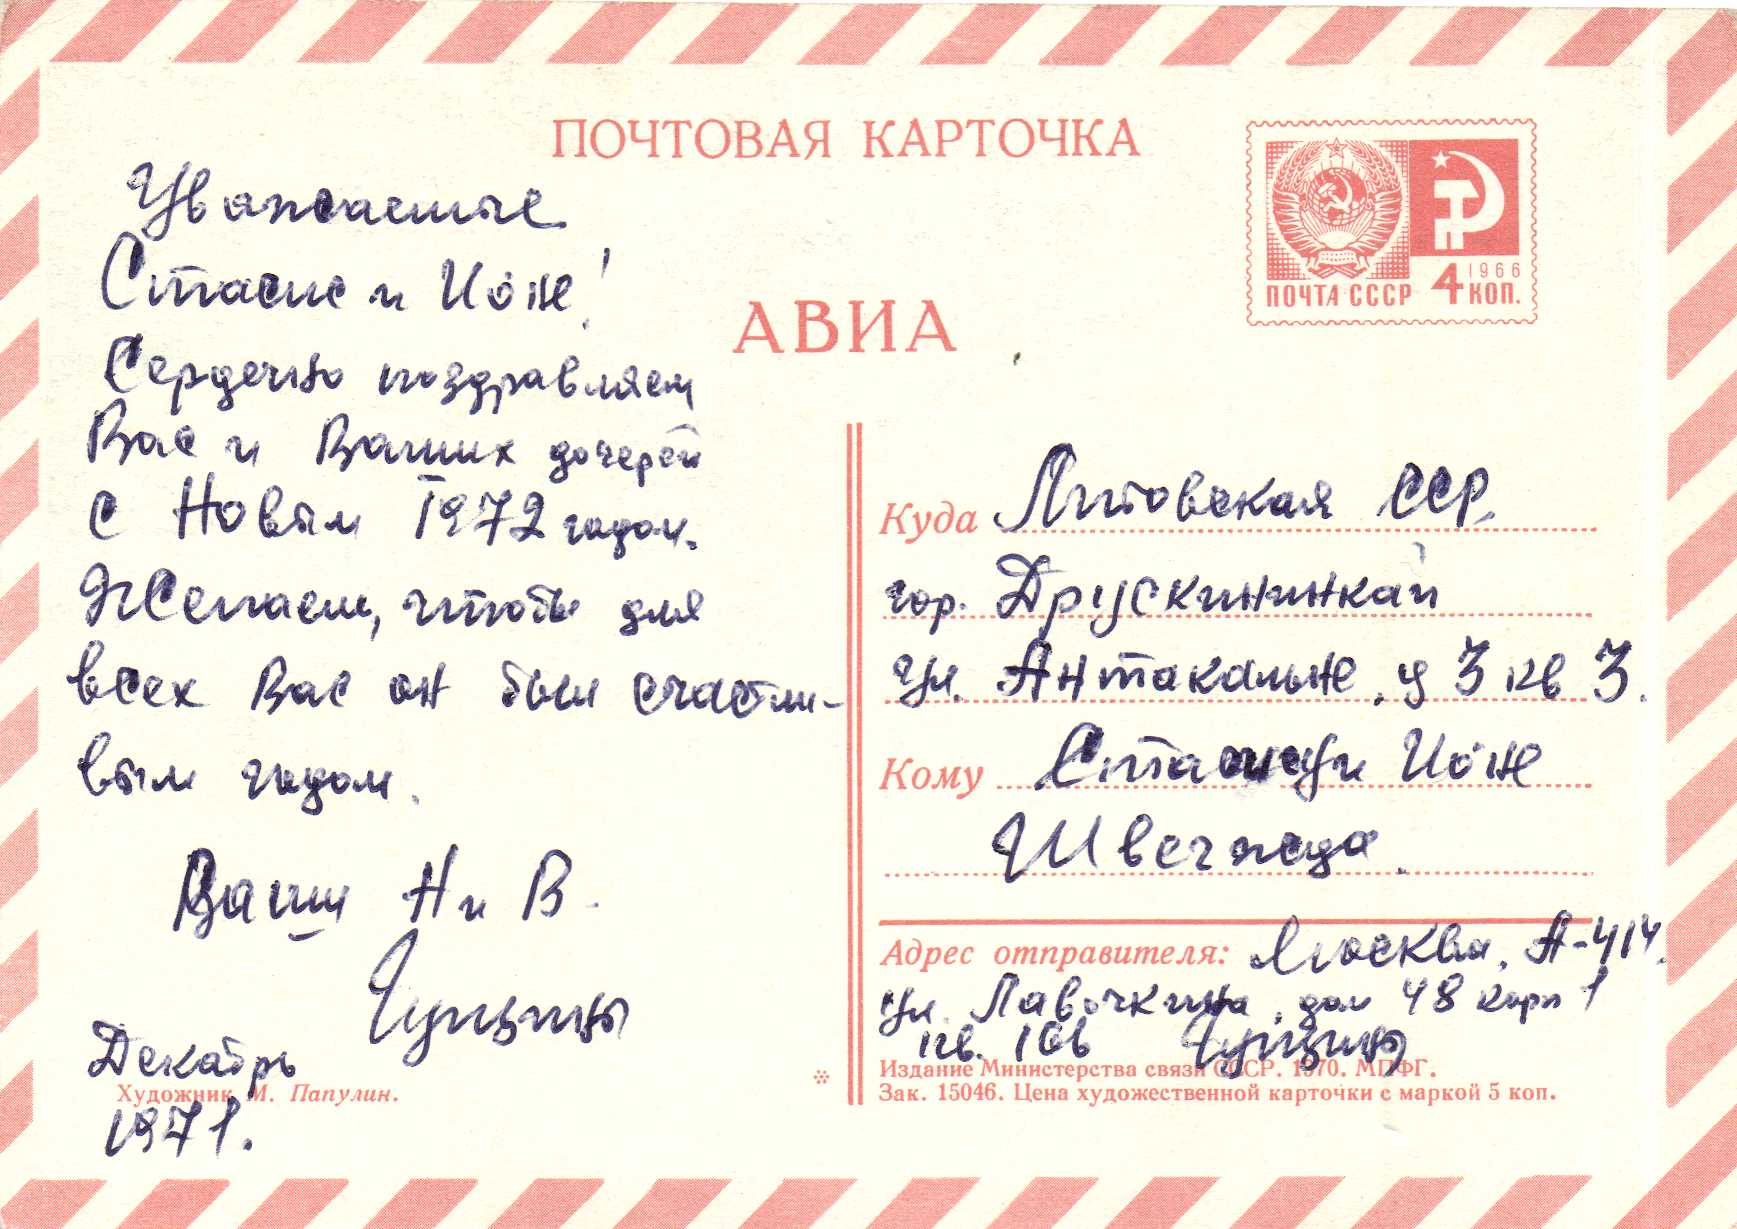 ПОЧТОВАЯ КАРТОЧКА
АВИА
1966
ПОЧТА СССР 4 КОП.
Уважаемые
Стасис и Йонё!
Сердечно поздравляем
Вас и Ваших дочерей
с Новым 1972 годом.
Желаем, чтобы для
всех Вас он был счастли-
вым годом.
Ваши Н и В.
Чупцины
Декабрь
1971.
Художник М. Папулин.
Куда Литовская ССР.
гор. Друскининкай
ул. Антакальне, д 3 кв 3.
Кому и
Адрес отправителя: Москва, А-414.
ул. Лавочкина, дом 48 корп 1
кв. 166
Издание Министерства связи СССР. 1970. МПФГ.
Зак. 15046. Цена художественной карточки с маркой 5 коп.